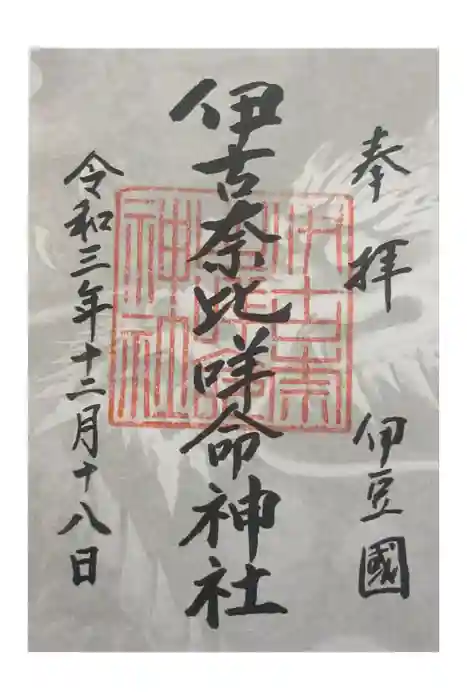 奉拝 伊豆國
伊古奈比咩命神社
令和三年十二月十八日
伊古奈
比咩命
神社